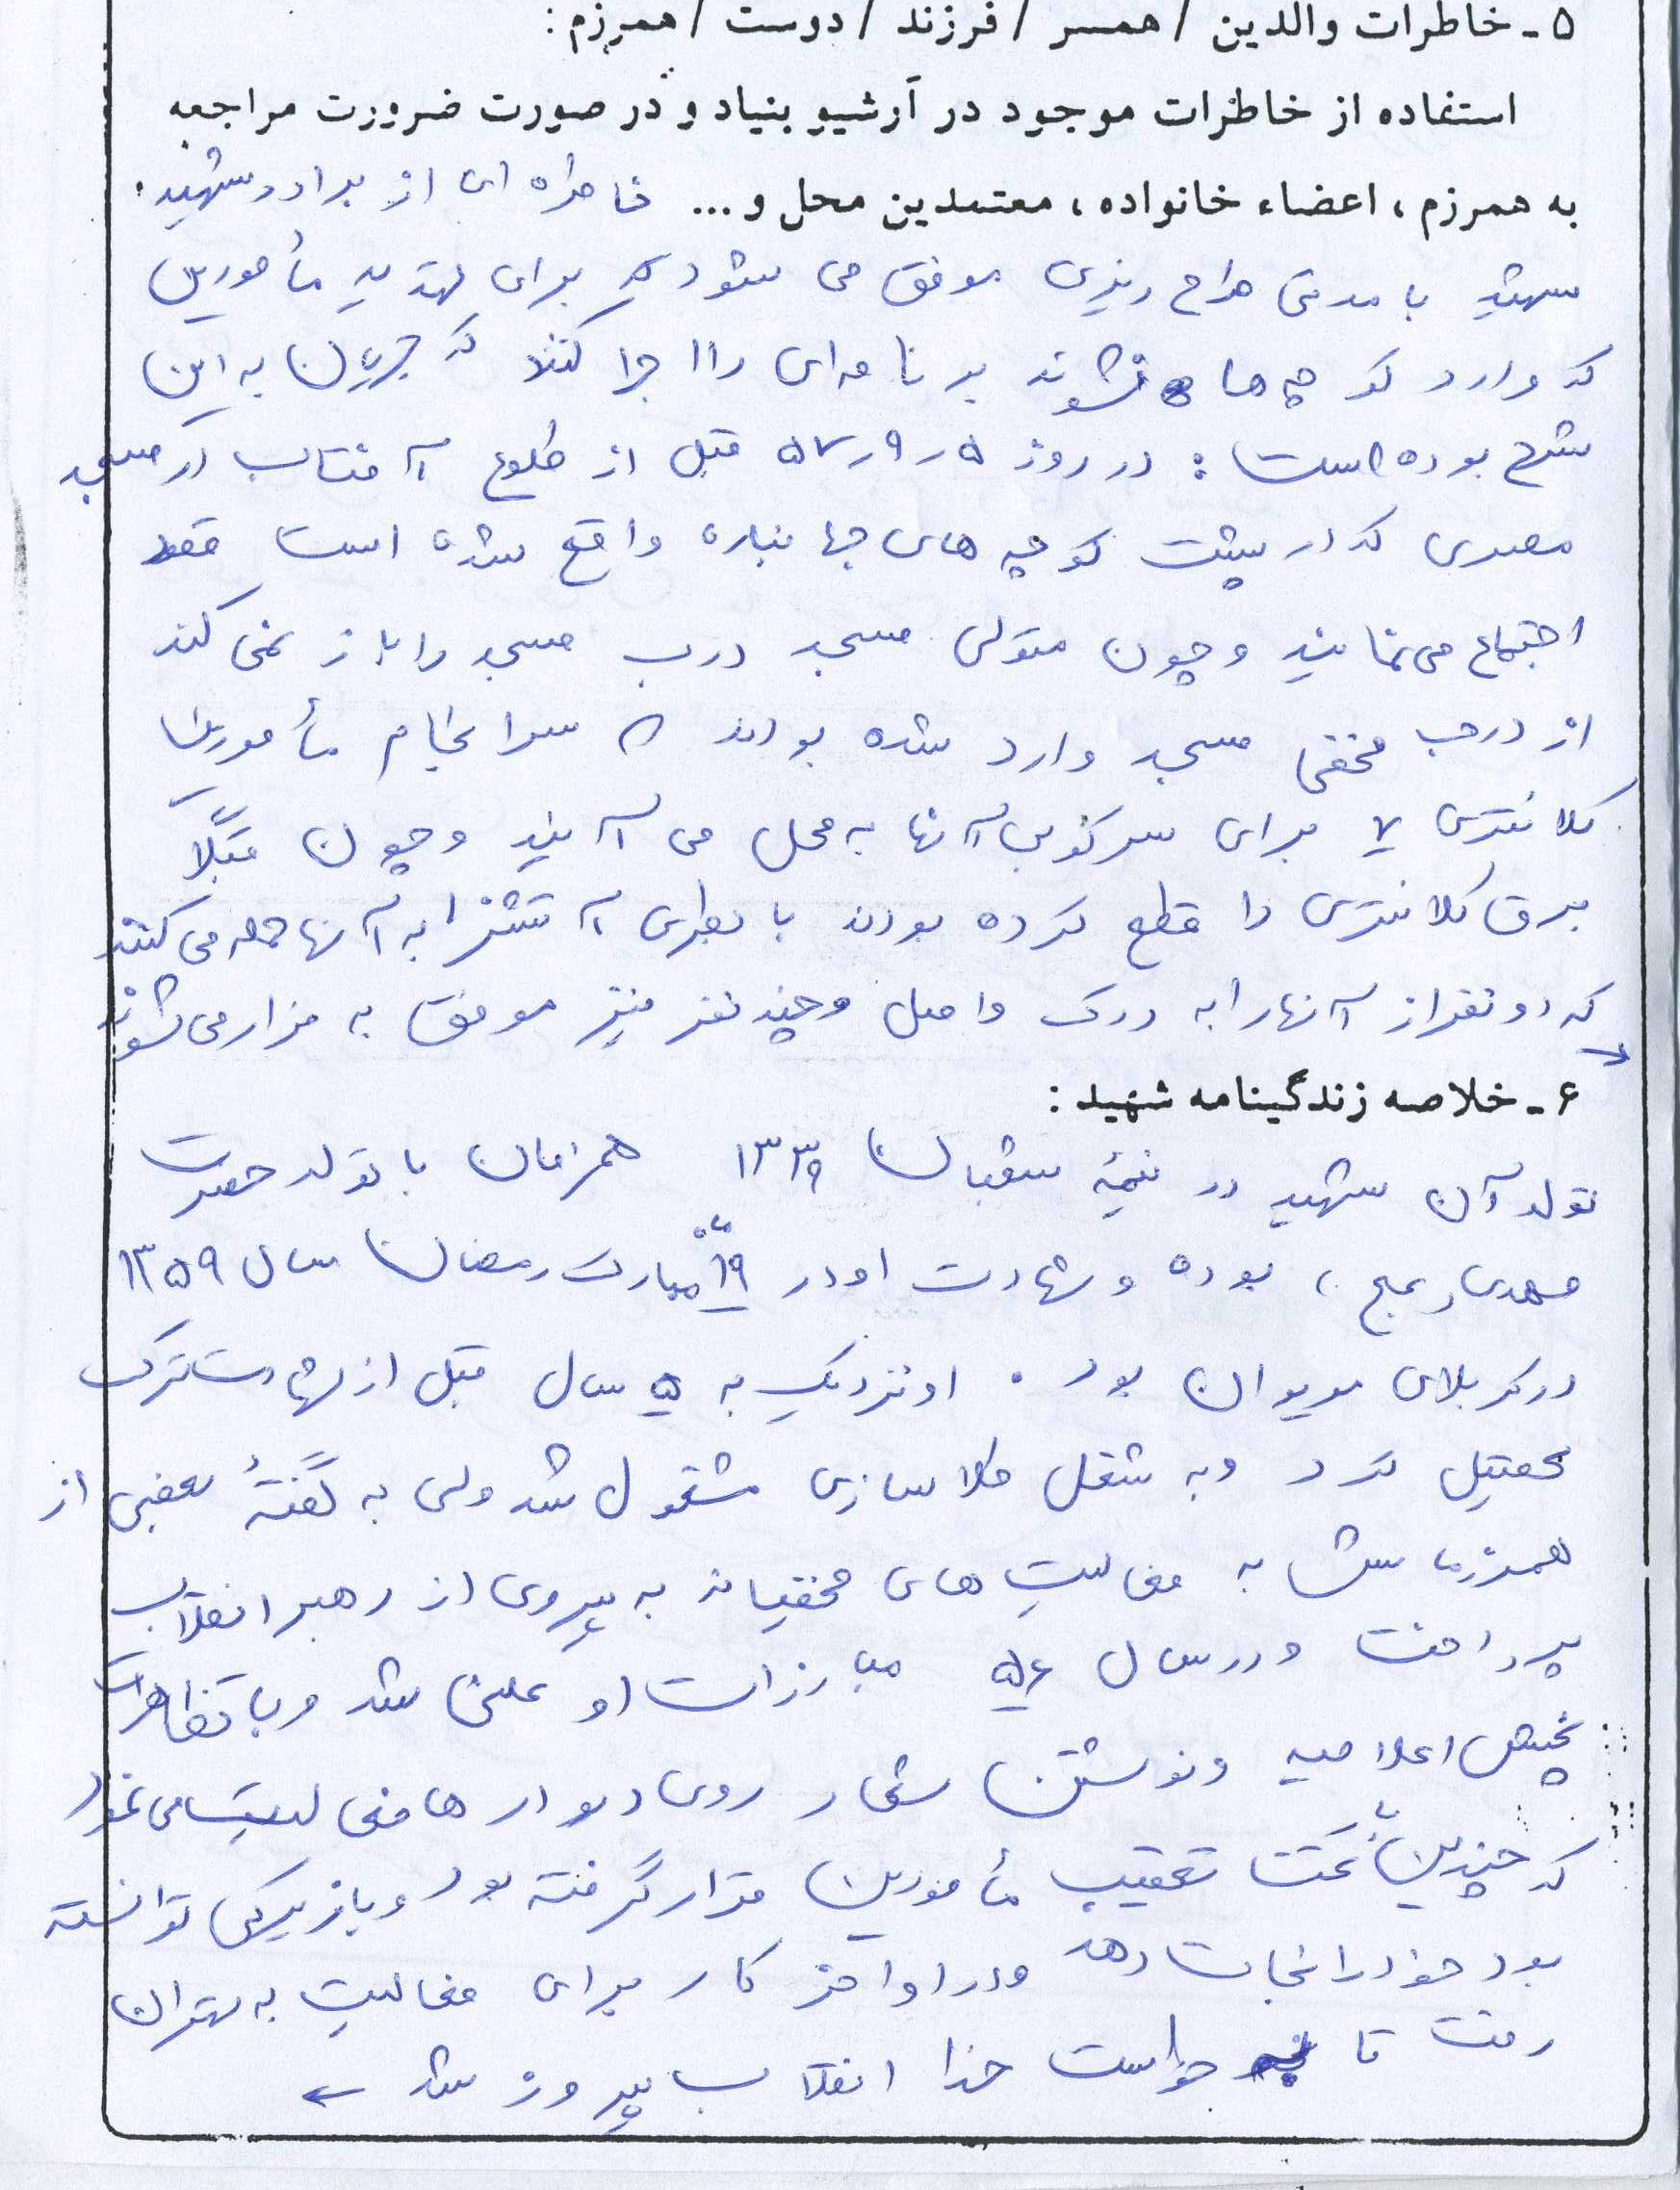 ۵ ـ خاطرات والدین / همسر / فرزند / دوست / همرزم :
استفاده از خاطرات موجود در آرشیو بنیاد و در صورت ضرورت مراجعه
به همرزم ، اعضاء خانواده ، معتمدین محل و ... خاطره ای از برادر شهید .
شهید با مدتی طرح ریزی موفق می شود که برای تهدید مأمورین
که وارد کوچه ها نشوند برنامه ای را اجرا کنند که جریان به این
شرح بوده است : در روز ۵ ر ۹ ر ۵۷ قبل از طلوع آفتاب در مسجد
معبدی که در پشت کوچه های جهانباره واقع شده است
اجتماع می نمایند و چون متولی مسجد درب مسجد را باز نمی کند
از درب مخفی مسجد وارد شده بودند سرانجام مأمورین
کلانتری ۷ برای سرکوبی آنها به محل می آیند و چون قبلاً
برق کلانتری را قطع کرده بودند با بطری آتشزا به آنها حمله می کنند
که دو نفر از آنها را به درک واصل و چند نفر نیز موفق به فرار می شوند
۶ ـ خلاصه زندگینامه شهید :
تولد آن شهید در نیمهٔ شعبان ۱۳۳۹ همزمان با تولد حضرت
مهدی (عج) بوده و شهادت او در ۱۹ مبارک رمضان سال ۱۳۵۹
در کربلای مریوان بود . او نزدیک به ۵ سال قبل از شهادت ترک
تحصیل کرد و به شغل طلا سازی مشغول شد ولی به گفتهٔ بعضی از
همرزمانش به فعالیت های مخفیانه به پیروی از رهبر انقلاب
پرداخت و در سال ۵۶ مبارزات او علنی شد و با تظاهرات
پخش اعلامیه و نوشتن شعار روی دیوارها فعالیت می نمود
که چندین بار تحت تعقیب مأمورین قرار گرفته بود و با زیرکی توانسته
بود خود را نجات دهد و در اواخر کار برای فعالیت به تهران
رفت تا خواست خدا انقلاب پیروز شد ←